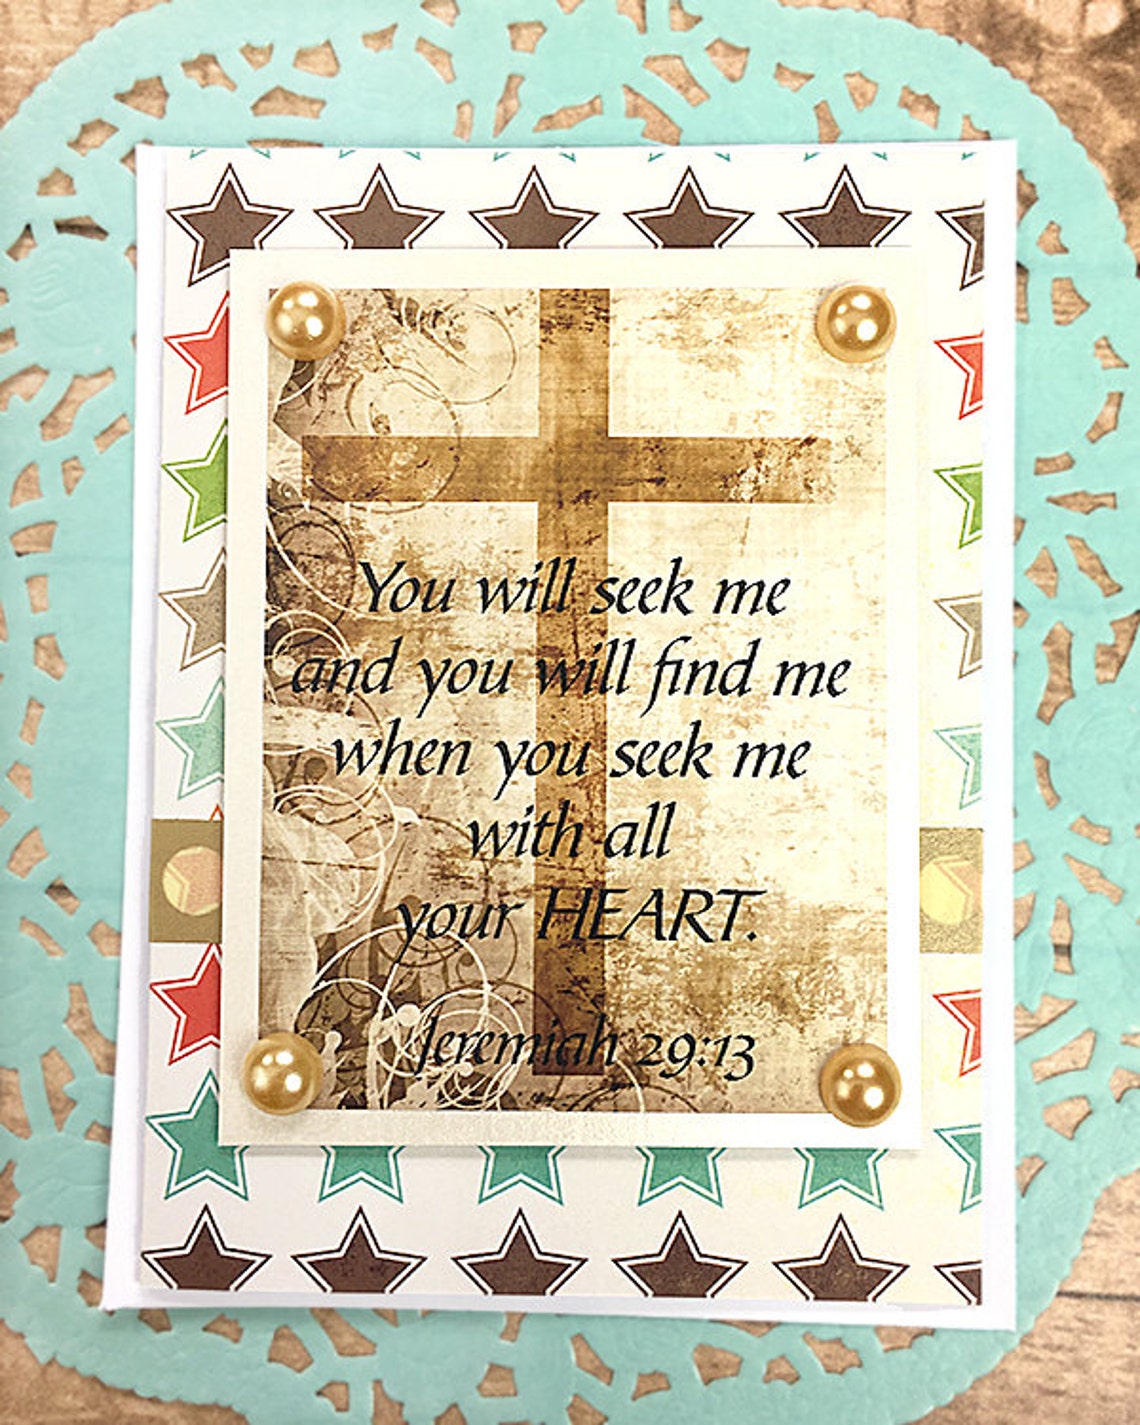 You will seek me
and you will find me
when you seek me
with all
your HEART.
Jeremiah 29:13